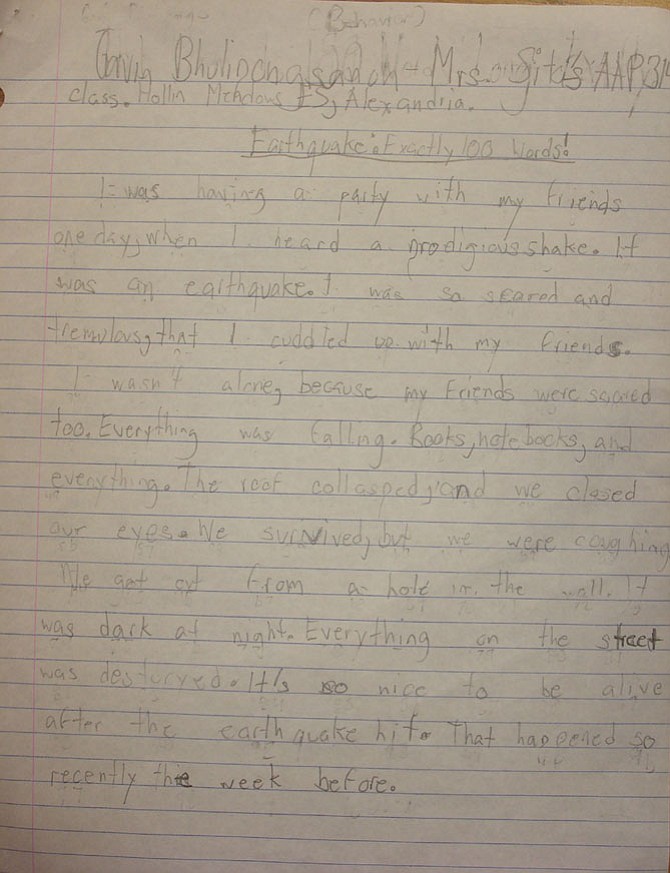 (Behavior)
Bhulipongsanon - Mrs. Sita's AAP, 3/4
class. Hollin Meadows ES, Alexandria.
Earthquake: Exactly 100 Words!
I was having a party with my friends
one day, when I heard a prodigious shake. It
was an earthquake. I was so scared and
tremulous, that I cuddled up with my friends.
I wasn't alone, because my friends were scared
too. Everything was falling. Books, notebooks, and
everything. The roof collasped, and we closed
our eyes. We survived, but we were coughing
We got out from a hole in the wall. It
was dark at night. Everything on the street
was destoryed. It's so nice to be alive
after the earthquake hit. That happened so
recently the week before.